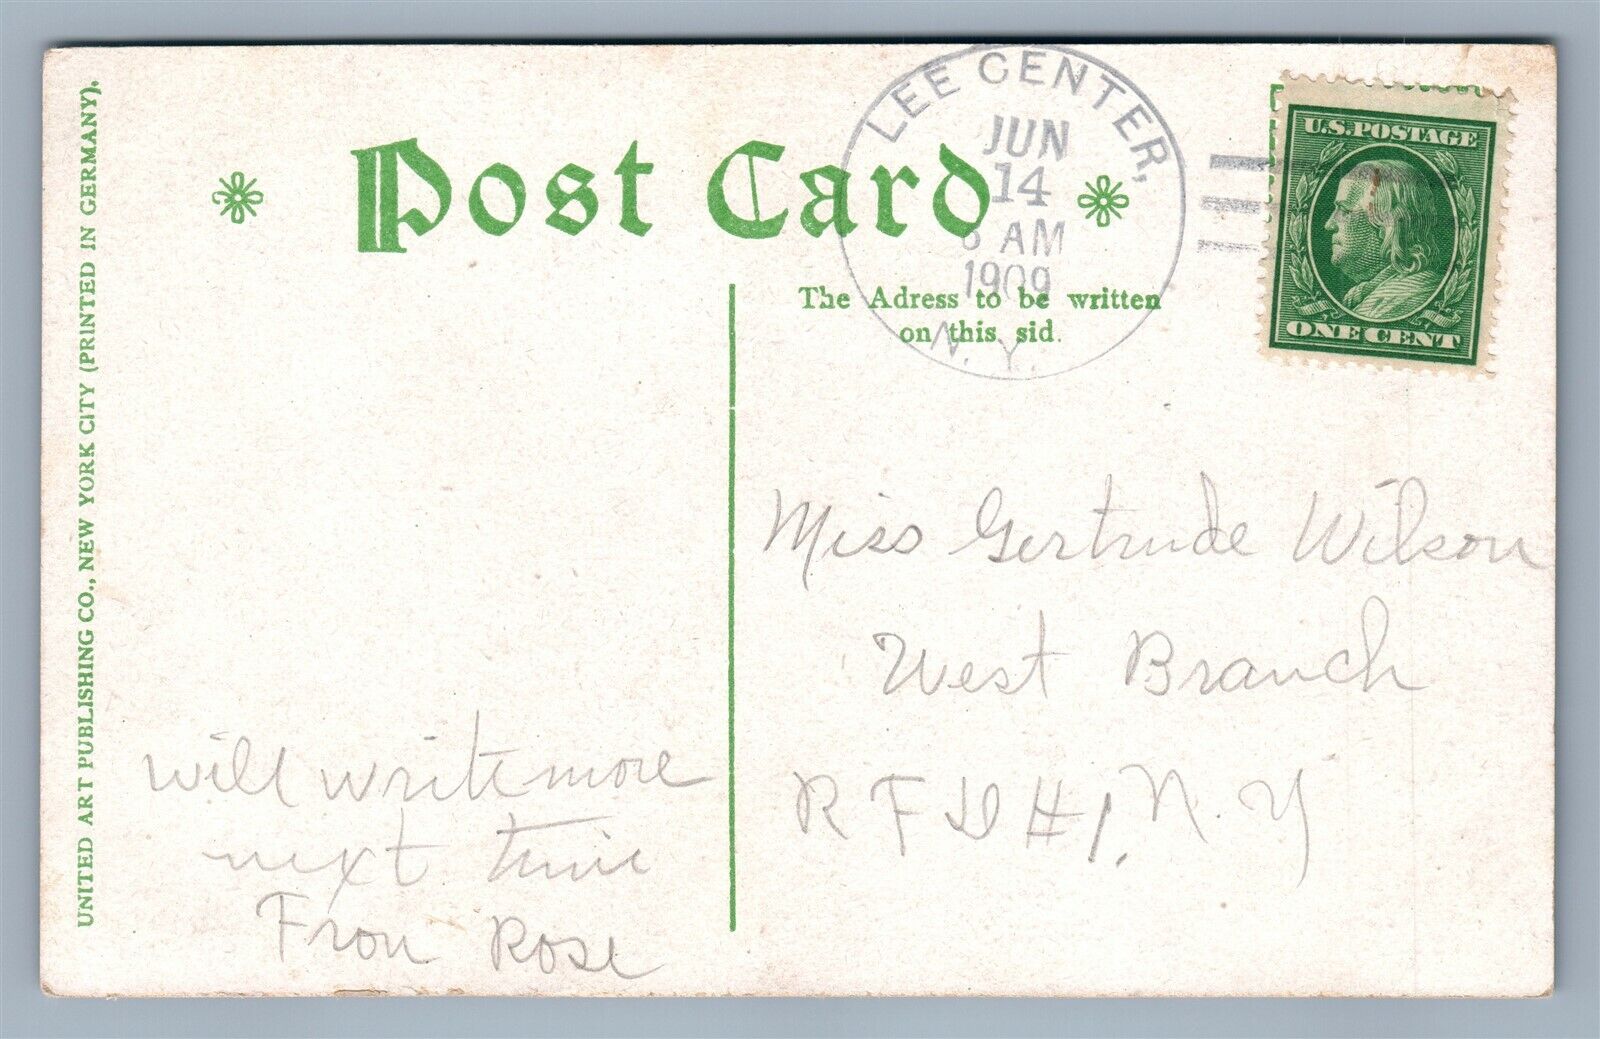 UNITED ART PUBLISHING CO., NEW YORK CITY (PRINTED IN GERMANY),
Post Card
LEE CENTER,
JUN
14
AM
1909
N. Y.
U.S. POSTAGE
ONE CENT
The Adress to be written
on this sid.
Miss Gertrude Wilson
West Branch
R F D #1, N. Y
will write more
next time
From Rose